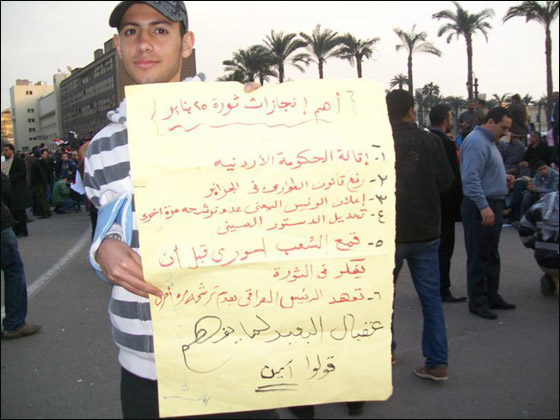 { أهم إنجازات ثورة ٢٥ يناير }
١- إقالة الحكومة الأردنيه
٢- رفع قانون الطوارئ في الجزائر
٣- إعلان الرئيس اليمنى عدم ترشيحه مرة أخرى
٤- تعديل الدستور الصينى
٥- قمع الشعب السورى قبل أن
يفكر فى الثورة
٦- تعهد الرئيس العراقى بعدم ترشحه مرة أخرى
عقبال البعيد لما يفهم
قولوا آمين